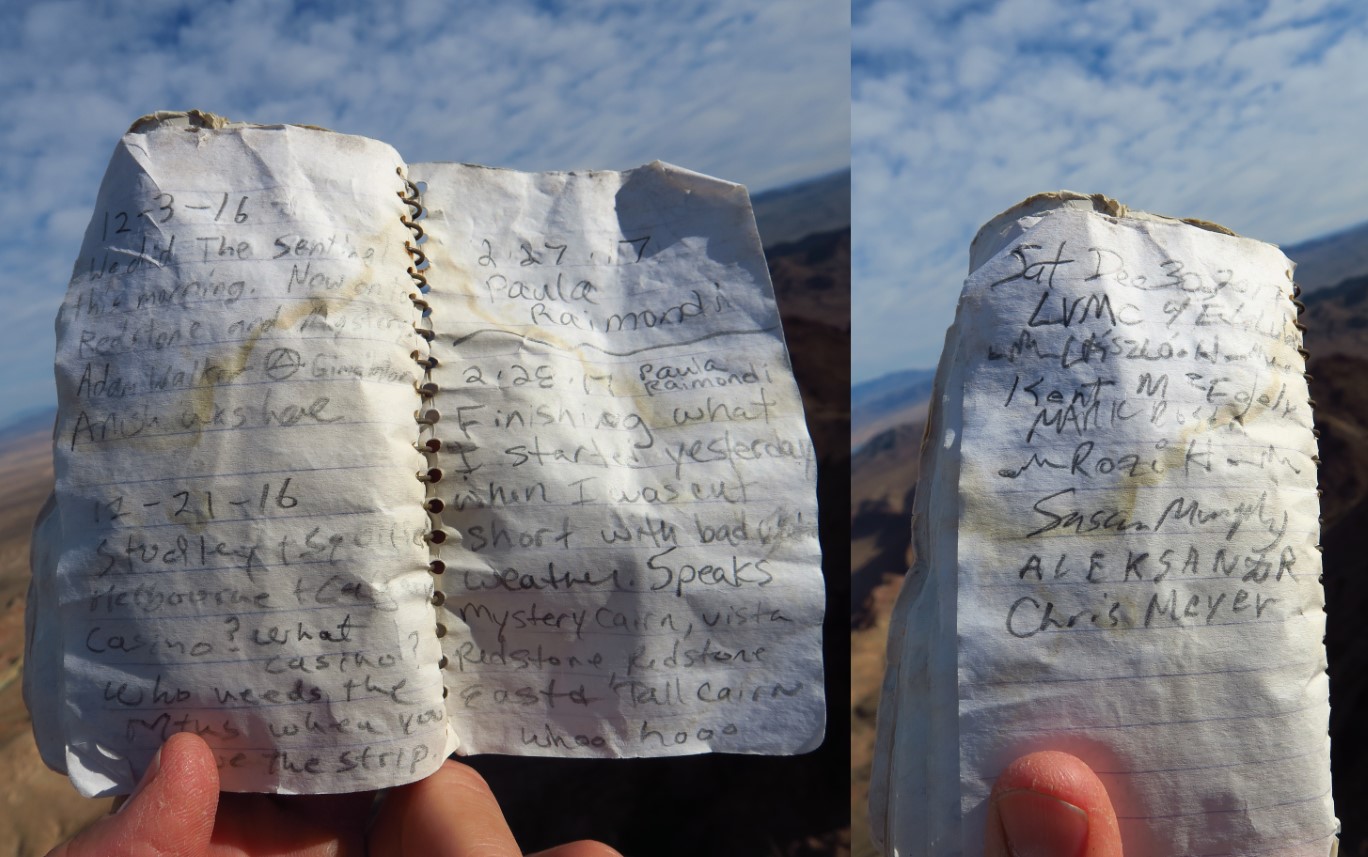 12-3-16
We did The Sentinel
this morning. Now on to
Redstone and Mystery
Adam Walker
Anish was here
12-21-16
Studley +
Melbourne +
Casino? what
casino?
Who needs the
Mtns when you
the strip.
2.27.17
Paula
Raimondi
2.28.17 Paula
Raimondi
Finishing what
I started yesterday
when I was cut
short with bad
weather. Speaks
Mystery Cairn, vista
Redstone Redstone
East & Tall Cairn
whoo hooo
Sat Dec 30
LVMC
Laszlo H
Kent
Rozi H
Susan Murphy
ALEKSANDR
Chris Meyer